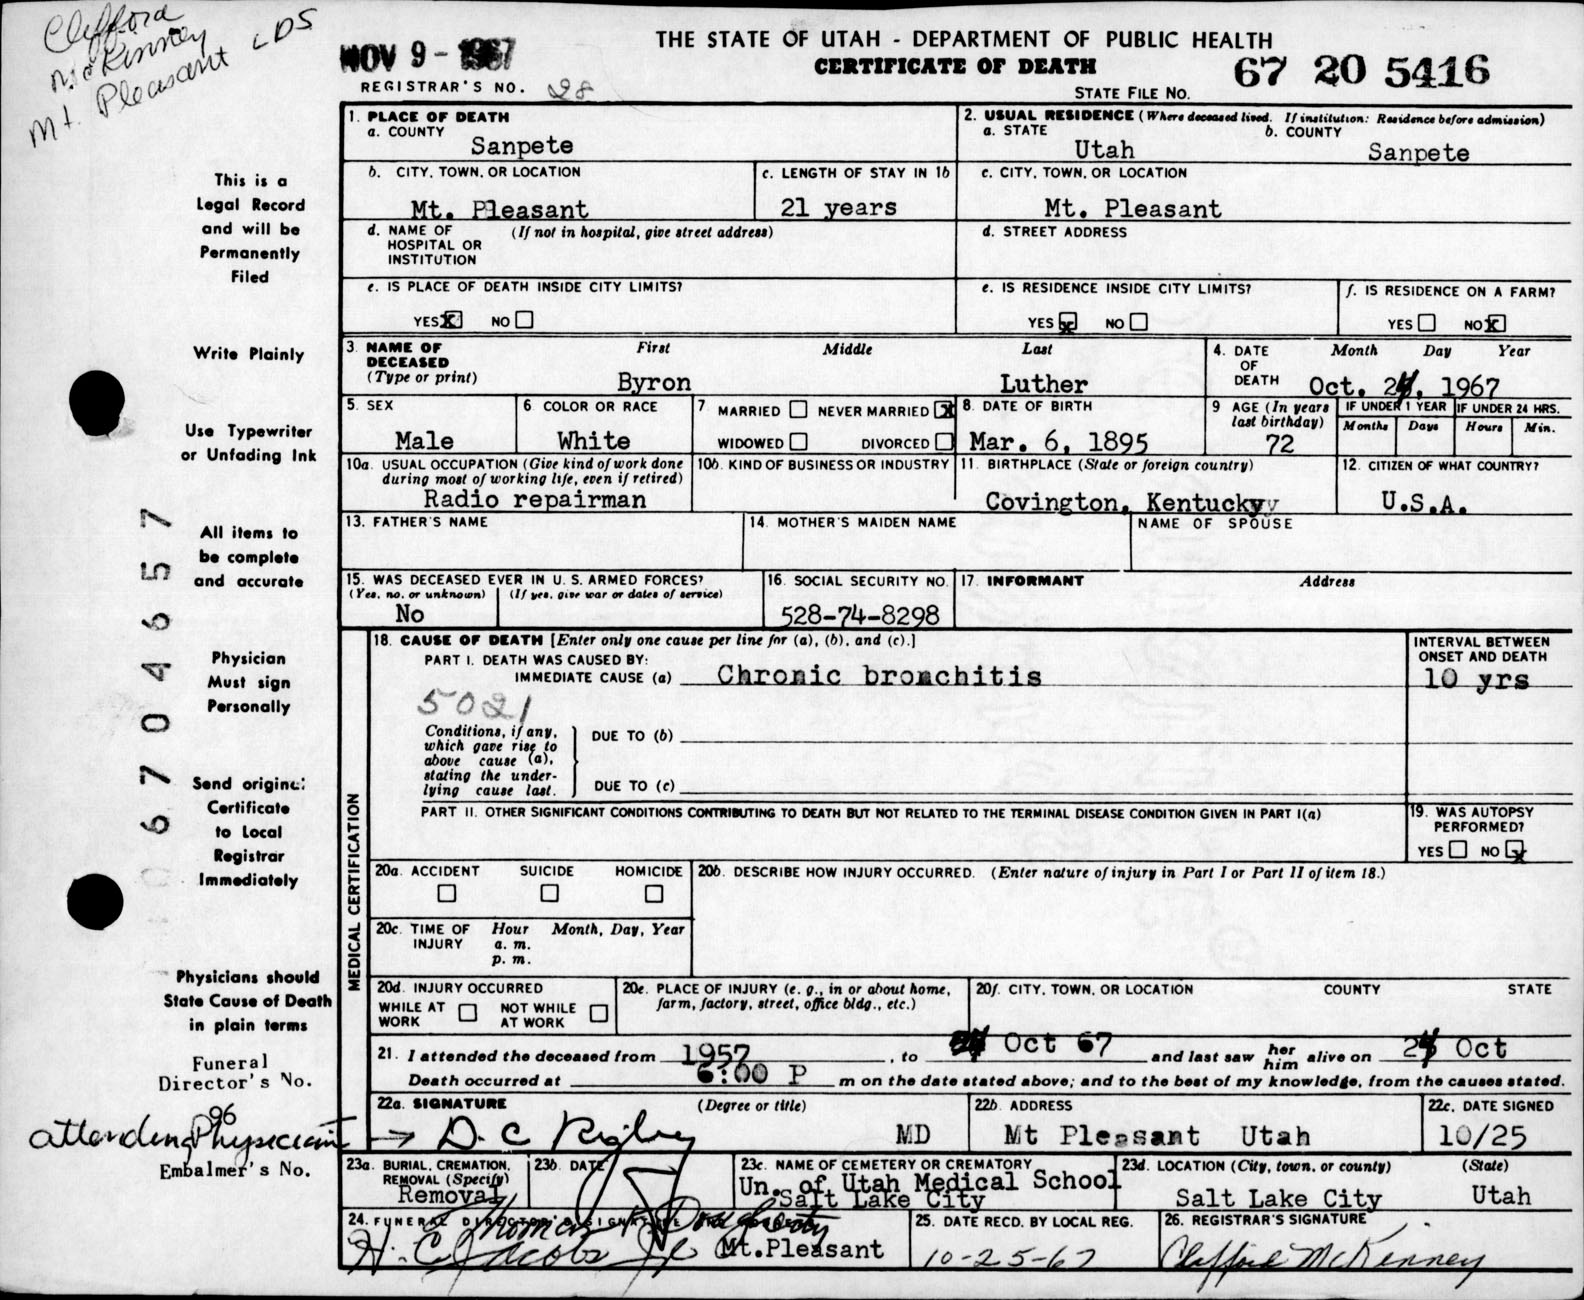 Clifford
McKinney LDS
Mt. Pleasant
NOV 9 - 1967
THE STATE OF UTAH - DEPARTMENT OF PUBLIC HEALTH
CERTIFICATE OF DEATH
67 20 5416
REGISTRAR'S NO. 28
STATE FILE NO.
This is a
Legal Record
and will be
Permanently
Filed
Write Plainly
Use Typewriter
or Unfading Ink
All items to
be complete
and accurate
Physician
Must sign
Personally
Send original
Certificate
to Local
Registrar
Immediately
Physicians should
State Cause of Death
in plain terms
Funeral
Director's No.
96
attending Physician →
Embalmer's No.
0670 4657
1. PLACE OF DEATH
a. COUNTY
Sanpete
2. USUAL RESIDENCE (Where deceased lived. If institution: Residence before admission)
a. STATE b. COUNTY
Utah Sanpete
b. CITY, TOWN, OR LOCATION
Mt. Pleasant
c. LENGTH OF STAY IN 1b
21 years
c. CITY, TOWN, OR LOCATION
Mt. Pleasant
d. NAME OF (If not in hospital, give street address)
HOSPITAL OR
INSTITUTION
d. STREET ADDRESS
e. IS PLACE OF DEATH INSIDE CITY LIMITS?
YES X NO
e. IS RESIDENCE INSIDE CITY LIMITS?
YES X NO
f. IS RESIDENCE ON A FARM?
YES NO X
3. NAME OF First Middle Last
DECEASED
(Type or print) Byron Luther
4. DATE Month Day Year
OF
DEATH Oct. 24, 1967
5. SEX
Male
6 COLOR OR RACE
White
7 MARRIED NEVER MARRIED X
WIDOWED DIVORCED
8. DATE OF BIRTH
Mar. 6, 1895
9 AGE (In years
last birthday)
72
IF UNDER 1 YEAR IF UNDER 24 HRS.
Months Days Hours Min.
10a. USUAL OCCUPATION (Give kind of work done
during most of working life, even if retired)
Radio repairman
10b. KIND OF BUSINESS OR INDUSTRY
11. BIRTHPLACE (State or foreign country)
Covington, Kentucky
12. CITIZEN OF WHAT COUNTRY?
U.S.A.
13. FATHER'S NAME
14. MOTHER'S MAIDEN NAME
NAME OF SPOUSE
15. WAS DECEASED EVER IN U. S. ARMED FORCES?
(Yes, no, or unknown) (If yes, give war or dates of service)
No
16. SOCIAL SECURITY NO.
528-74-8298
17. INFORMANT Address
MEDICAL CERTIFICATION
18. CAUSE OF DEATH [Enter only one cause per line for (a), (b), and (c).]
PART I. DEATH WAS CAUSED BY:
IMMEDIATE CAUSE (a) Chronic bronchitis
5021
INTERVAL BETWEEN
ONSET AND DEATH
10 yrs
Conditions, if any,
which gave rise to
above cause (a),
stating the under-
lying cause last.
DUE TO (b)
DUE TO (c)
PART II. OTHER SIGNIFICANT CONDITIONS CONTRIBUTING TO DEATH BUT NOT RELATED TO THE TERMINAL DISEASE CONDITION GIVEN IN PART I(a)
19. WAS AUTOPSY
PERFORMED?
YES NO X
20a. ACCIDENT SUICIDE HOMICIDE
20b. DESCRIBE HOW INJURY OCCURRED. (Enter nature of injury in Part I or Part II of item 18.)
20c. TIME OF Hour Month, Day, Year
INJURY a. m.
p. m.
20d. INJURY OCCURRED
WHILE AT NOT WHILE
WORK AT WORK
20e. PLACE OF INJURY (e. g., in or about home,
farm, factory, street, office bldg., etc.)
20f. CITY, TOWN, OR LOCATION COUNTY STATE
21. I attended the deceased from 1957, to 24 Oct 67 and last saw her him alive on 24 Oct
Death occurred at 6:00 P m on the date stated above; and to the best of my knowledge, from the causes stated.
22a. SIGNATURE (Degree or title)
D. C. Rigby MD
22b. ADDRESS
Mt Pleasant Utah
22c. DATE SIGNED
10/25
23a. BURIAL, CREMATION,
REMOVAL (Specify)
Removal
23b. DATE
23c. NAME OF CEMETERY OR CREMATORY
Un. of Utah Medical School
Salt Lake City
23d. LOCATION (City, town, or county) (State)
Salt Lake City Utah
24. FUNERAL DIRECTOR'S SIGNATURE
Thomas Dougherty
H. C. Jacobs Jr. Mt.Pleasant
25. DATE RECD. BY LOCAL REG.
10-25-67
26. REGISTRAR'S SIGNATURE
Clifford McKenney